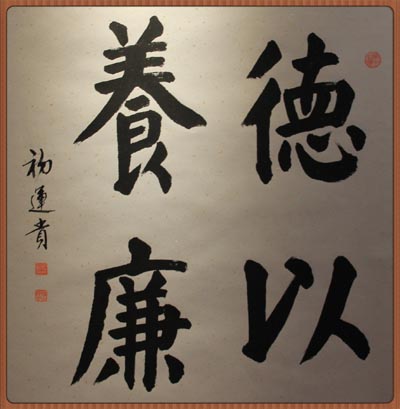 德以
養廉
初運貴